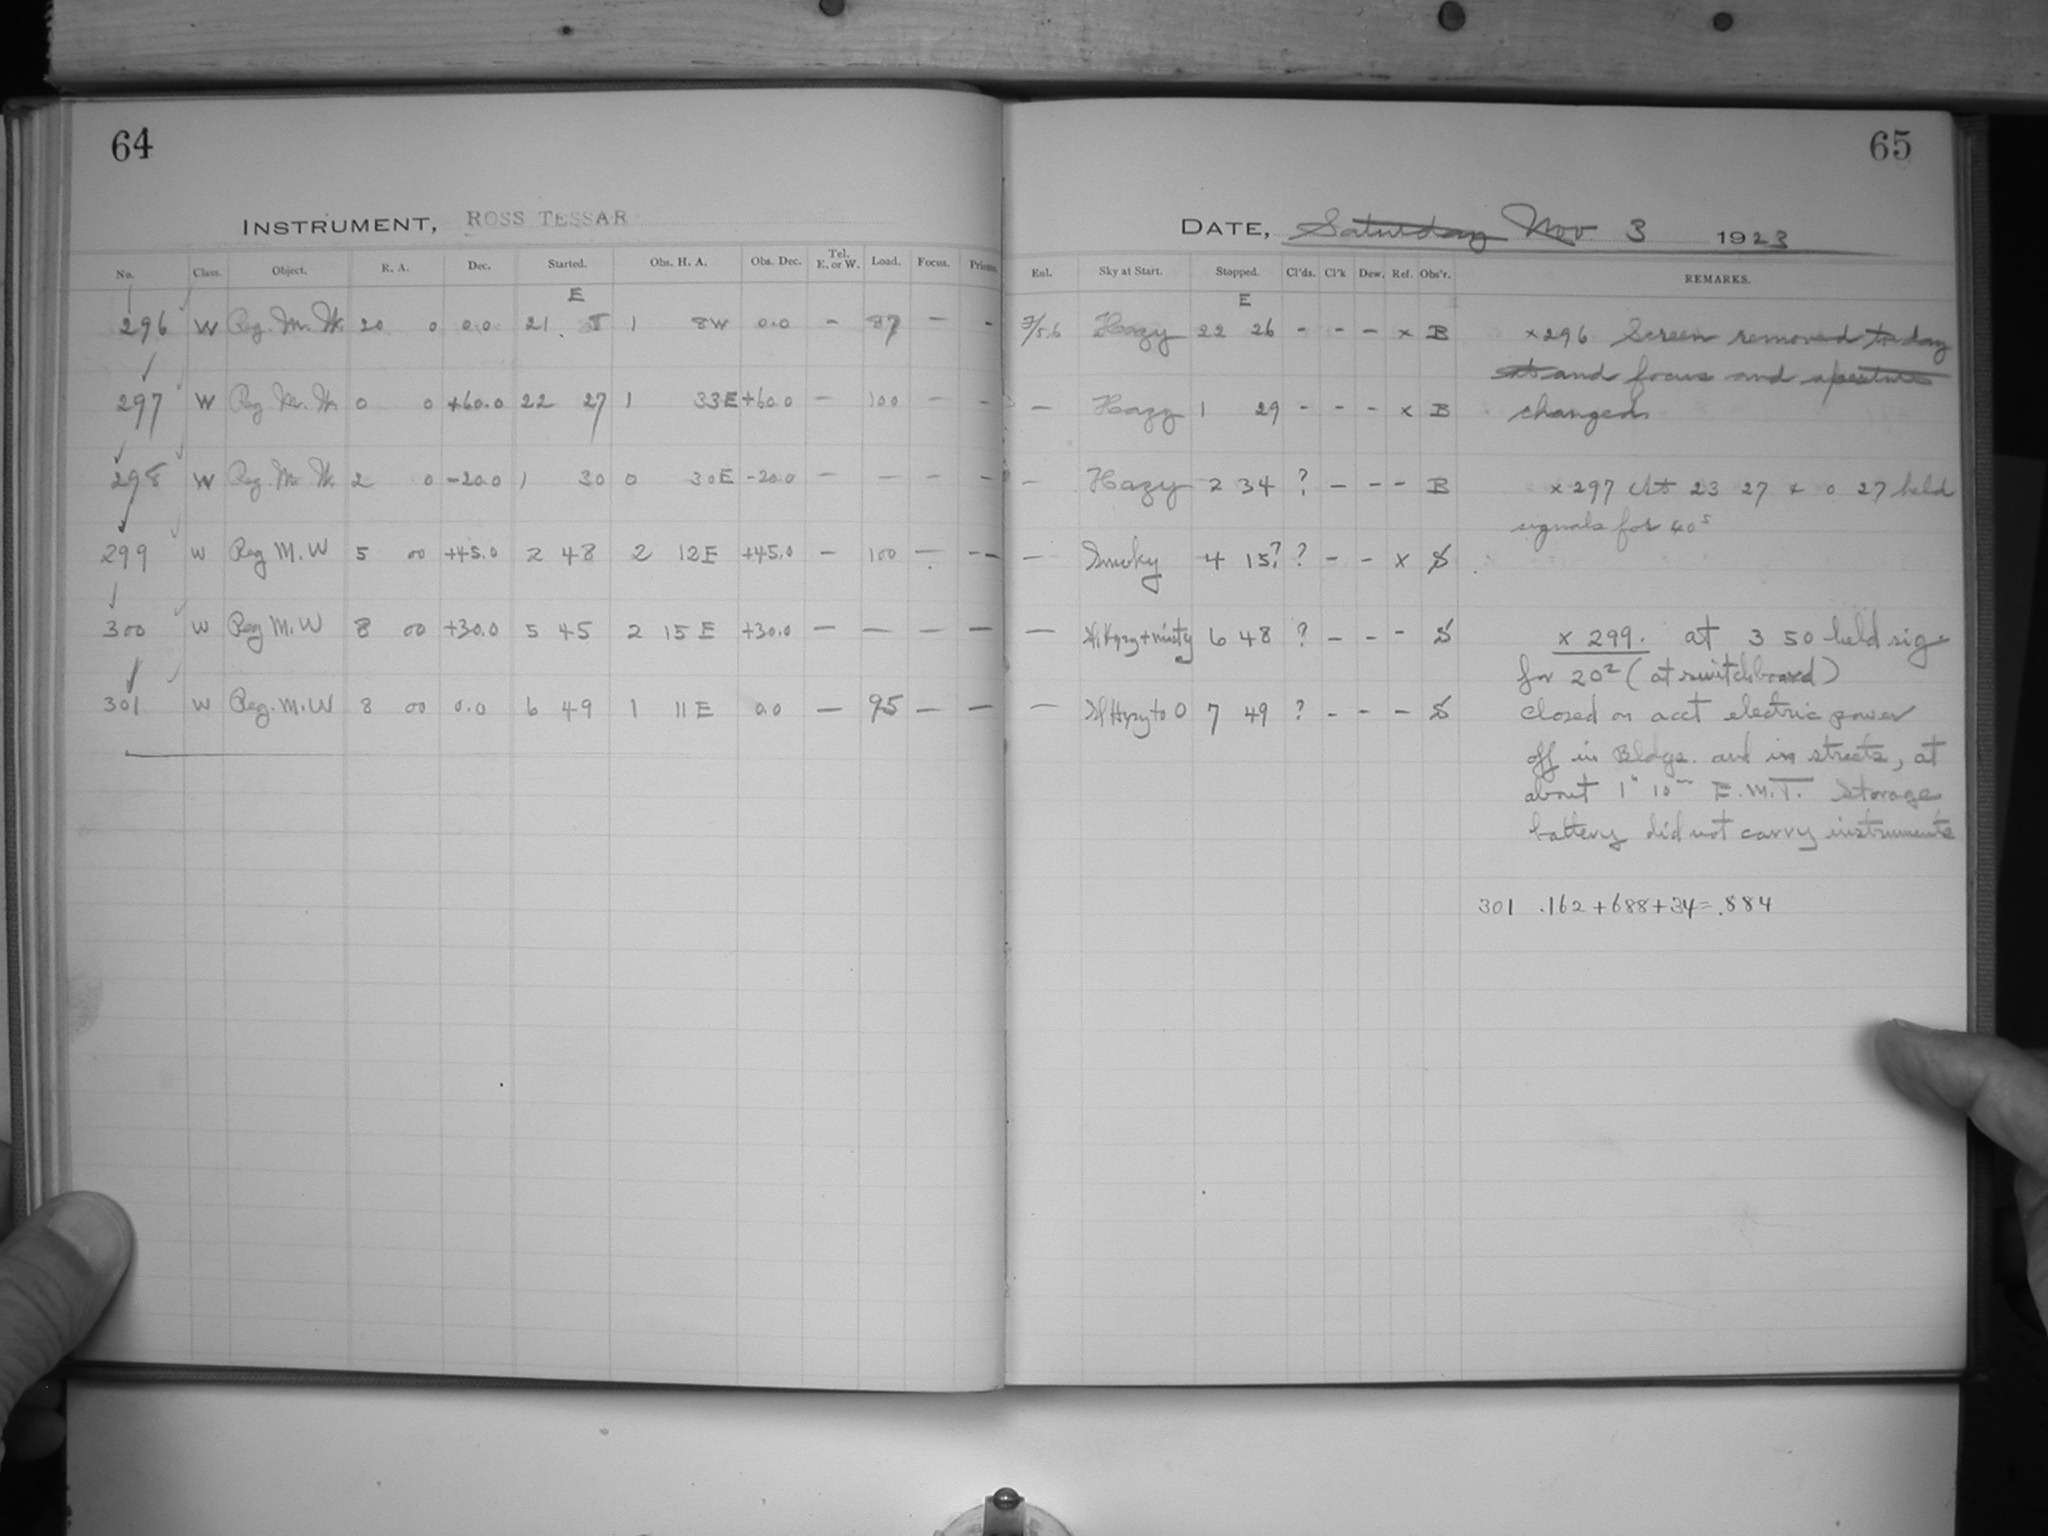 64
INSTRUMENT, ROSS TESSAR
No. Class. Object. R. A. Dec. Started. Obs. H. A. Obs. Dec. Tel. E. or W. Load. Focus. Prisms.
E
296 W Reg. M. W. 20 0 0.0 21 8 1 8W 0.0 – 87 – -
297 W Reg. M. W. 0 0 +60.0 22 27 1 33E +60.0 – 100 – -
298 W Reg. M. W. 2 0 -20.0 1 30 0 30E -20.0 – — – -
299 W Reg M. W 5 00 +45.0 2 48 2 12E +45.0 – 100 — --
300 W Reg M. W 8 00 +30.0 5 45 2 15 E +30.0 — — — —
301 W Reg. M. W 8 00 0.0 6 49 1 11 E 0.0 — 95 — —
65
DATE, Saturday Nov 3 1923
Enl. Sky at Start. Stopped. Cl'ds. Cl'k Dew. Ref. Obs'r. REMARKS.
E
Hazy 22 26 - - – x B
— Hazy 1 29 - - – x B
– Hazy 2 34 ? – - - B
— Smoky 4 15? ? – – x S
— Sl. Hazy + misty 6 48 ? – - - S
— Sl Hazy to 0 7 49 ? - - – S
x 296 Screen removed today
and focus and aperture
changed.
x 297 At 23 27 + 0 27 held
signals for 40s
x 299. at 3 50 held sig
for 20s (at switchboard)
closed on acct electric power
off in Bldgs. and in streets, at
about 1h 10m E.M.T. Storage
battery did not carry instruments
301 .162 + 688 + 34 = .884